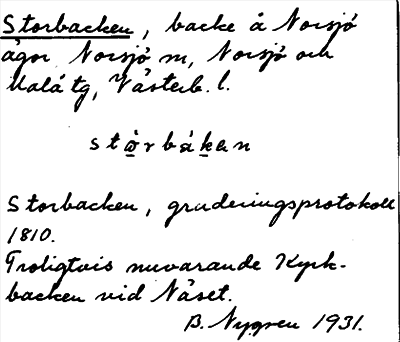 Storbacken, backe å Norsjö
ägor Norsjö sn, Norsjö och
Malå tg, Västerb. l.
stòrbákan
Storbacken, graderingsprotokoll
1810.
Troligtvis nuvarande Kyrk-
backen vid Näset.
B. Nygren 1931.